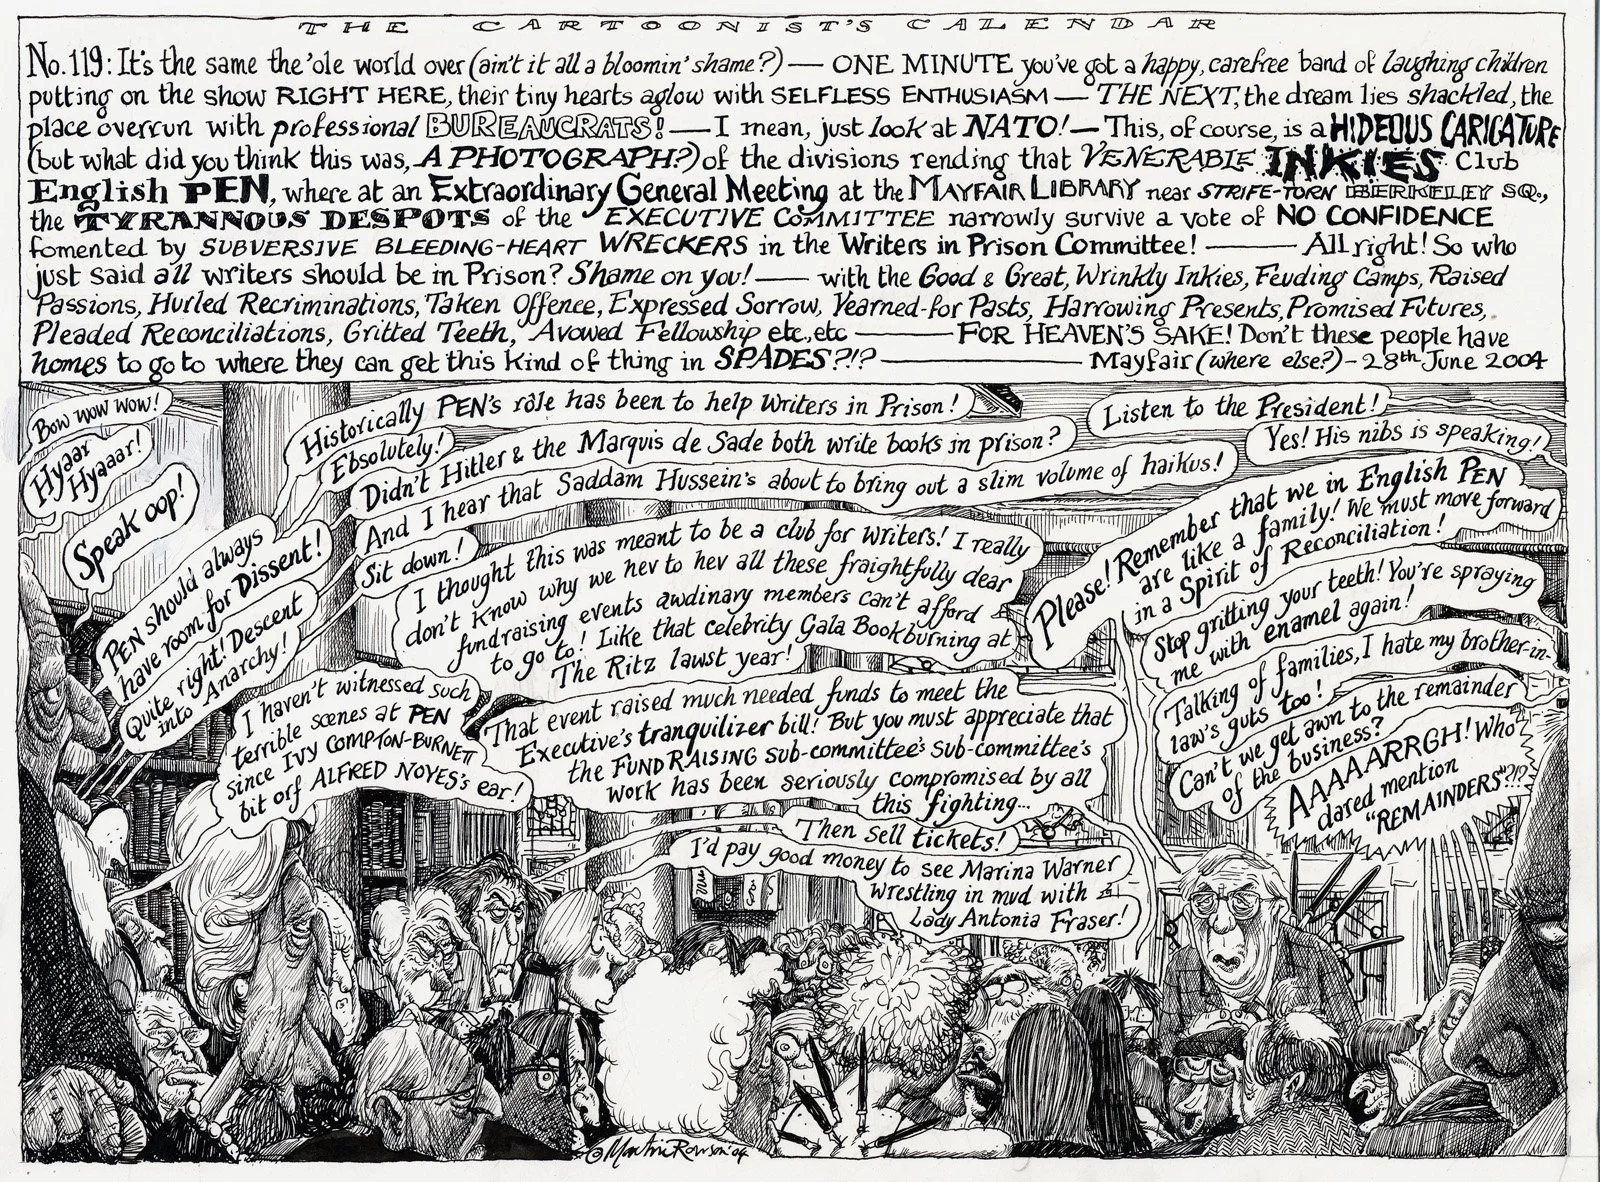 THE CARTOONIST'S CALENDAR
No. 119: It's the same the 'ole world over (ain't it all a bloomin' shame?) — ONE MINUTE you've got a happy, carefree band of laughing children
putting on the show RIGHT HERE, their tiny hearts aglow with SELFLESS ENTHUSIASM — THE NEXT, the dream lies shackled, the
place overrun with professional BUREAUCRATS! — I mean, just look at NATO! — This, of course, is a HIDEOUS CARICATURE
(but what did you think this was, A PHOTOGRAPH?) of the divisions rending that VENERABLE INKIES Club
English PEN, where at an Extraordinary General Meeting at the MAYFAIR LIBRARY near STRIFE-TORN BERKELEY SQ.,
the TYRANNOUS DESPOTS of the EXECUTIVE COMMITTEE narrowly survive a vote of NO CONFIDENCE
fomented by SUBVERSIVE BLEEDING-HEART WRECKERS in the Writers in Prison Committee! — All right! So who
just said all writers should be in Prison? Shame on you! — with the Good & Great, Wrinkly Inkies, Feuding Camps, Raised
Passions, Hurled Recriminations, Taken Offence, Expressed Sorrow, Yearned-for Pasts, Harrowing Presents, Promised Futures,
Pleaded Reconciliations, Gritted Teeth, Avowed Fellowship etc., etc — FOR HEAVEN'S SAKE! Don't these people have
homes to go to where they can get this kind of thing in SPADES?!? — Mayfair (where else?) – 28th June 2004
Bow wow wow!
Hyaar
Hyaaar!
Speak oop!
PEN should always
have room for Dissent!
Quite right! Descent
into Anarchy!
Historically PEN's rôle has been to help Writers in Prison!
Ebsolutely!
Didn't Hitler & the Marquis de Sade both write books in prison?
And I hear that Saddam Hussein's about to bring out a slim volume of haikus!
Sit down!
I thought this was meant to be a club for writers! I really
don't know why we hev to hev all these fraightfully dear
fundraising events awdinary members can't afford
to go to! Like that celebrity Gala Bookburning at
The Ritz lawst year!
I haven't witnessed such
terrible scenes at PEN
since IVY COMPTON-BURNETT
bit orf ALFRED NOYES's ear!
That event raised much needed funds to meet the
Executive's tranquilizer bill! But you must appreciate that
the FUNDRAISING sub-committee's sub-committee's
work has been seriously compromised by all
this fighting...
Then sell tickets!
I'd pay good money to see Marina Warner
wrestling in mud with
Lady Antonia Fraser!
Listen to the President!
Yes! His nibs is speaking!
Please! Remember that we in English PEN
are like a family! We must move forward
in a Spirit of Reconciliation!
Stop gritting your teeth! You're spraying
me with enamel again!
Talking of families, I hate my brother-in-
law's guts too!
Can't we get awn to the remainder
of the business?
AAAAARRGH! Who
dared mention
"REMAINDERS"?!?
© Martin Rowson '04